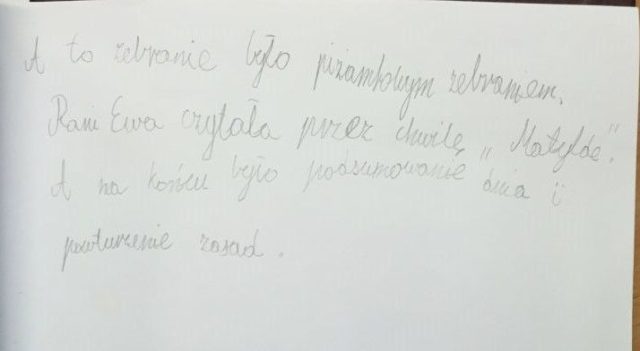 A to zebranie było piżamowym zebraniem.
Pani Ewa czytała przez chwilę „Matyldę".
A na końcu było podsumowanie dnia i
powturzenie zasad.